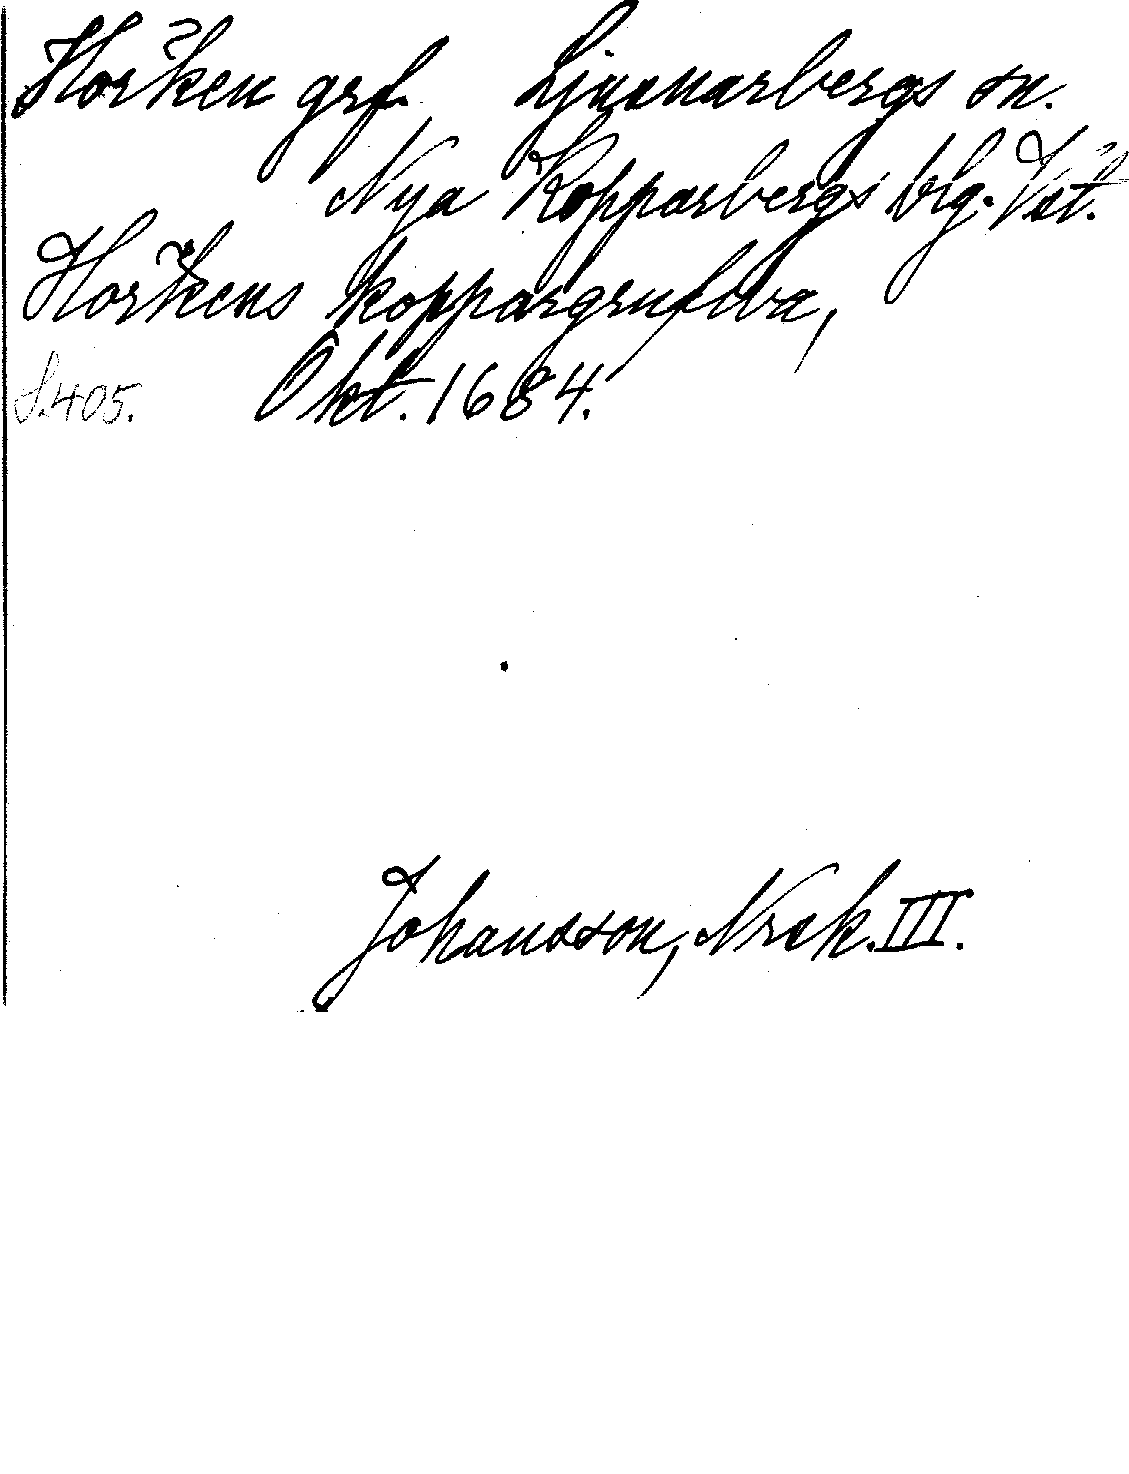 Hörken grf. Ljusnarsbergs sn.
Nya Kopparbergs blg. Vstm.
Hörkens koppargrufwa,
S. 405. Okt. 1684.
Johansson, Norsk. III.